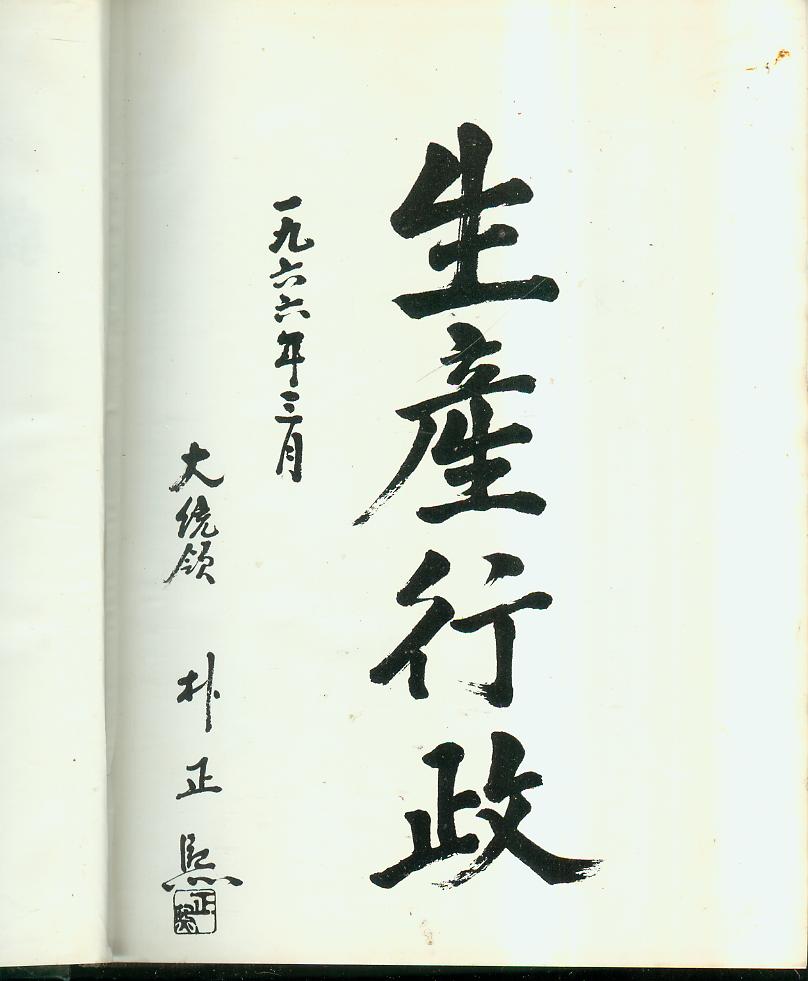 生產行政
一九六六年三月
大統領 朴正熙
正熙